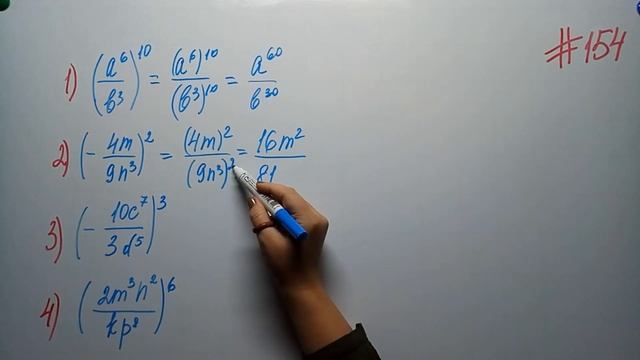 #154
1) (a⁶/b³)¹⁰ = (a⁶)¹⁰/(b³)¹⁰ = a⁶⁰/b³⁰
2) (- 4m/9n³)² = (4m)²/(9n³)² = 16m²/81
3) (- 10c⁷/3d⁵)³
4) (2m³n²/kp⁸)⁶